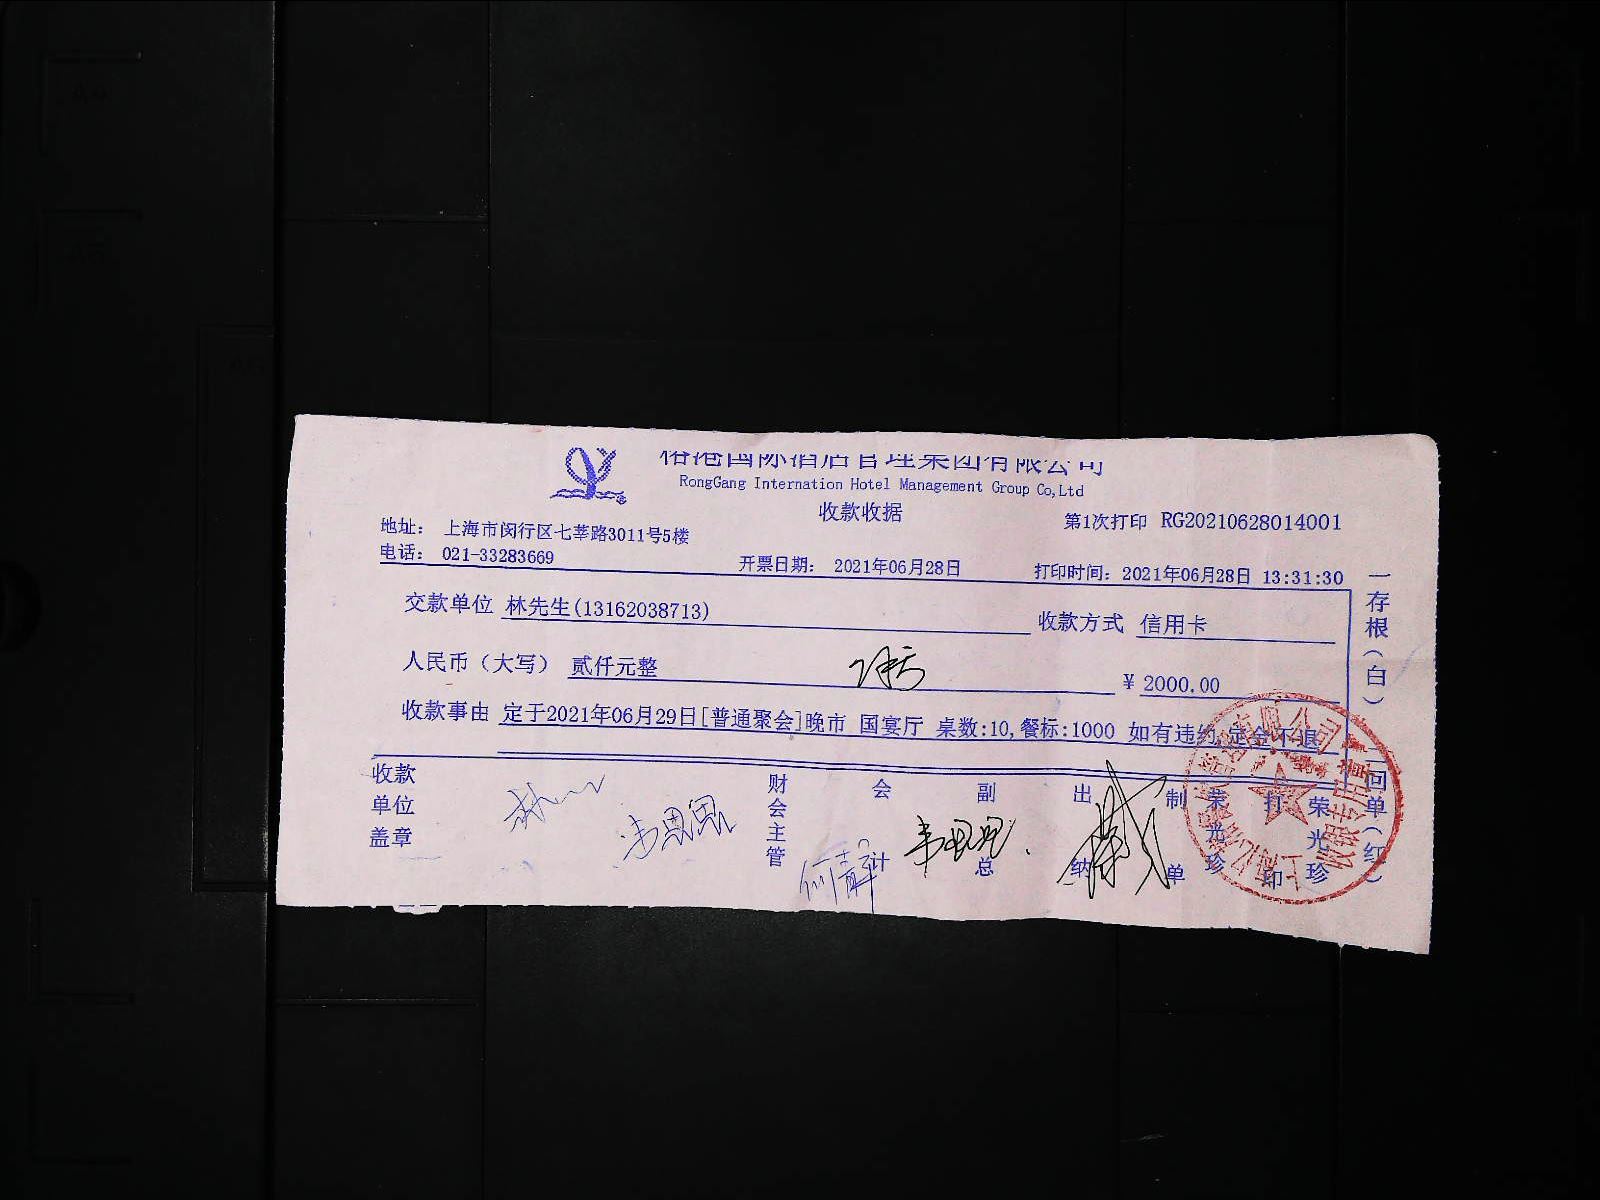 国际酒店管理集团有限公司
RongGang Internation Hotel Management Group Co,Ltd
收款收据
第1次打印 RG20210628014001
地址： 上海市闵行区七莘路3011号5楼
电话： 021-33283669
开票日期： 2021年06月28日
打印时间：2021年06月28日 13:31:30
交款单位 林先生(13162038713)
收款方式 信用卡
人民币（大写） 贰仟元整
¥ 2000.00
收款事由 定于2021年06月29日[普通聚会]晚市 国宴厅 桌数:10,餐标:1000 如有违约,定金不退
收款单位盖章
财会主管
会计
副总
出纳
制单 荣光珍
打印 荣光珍
一存根（白） 二回单（红）
收银专用章